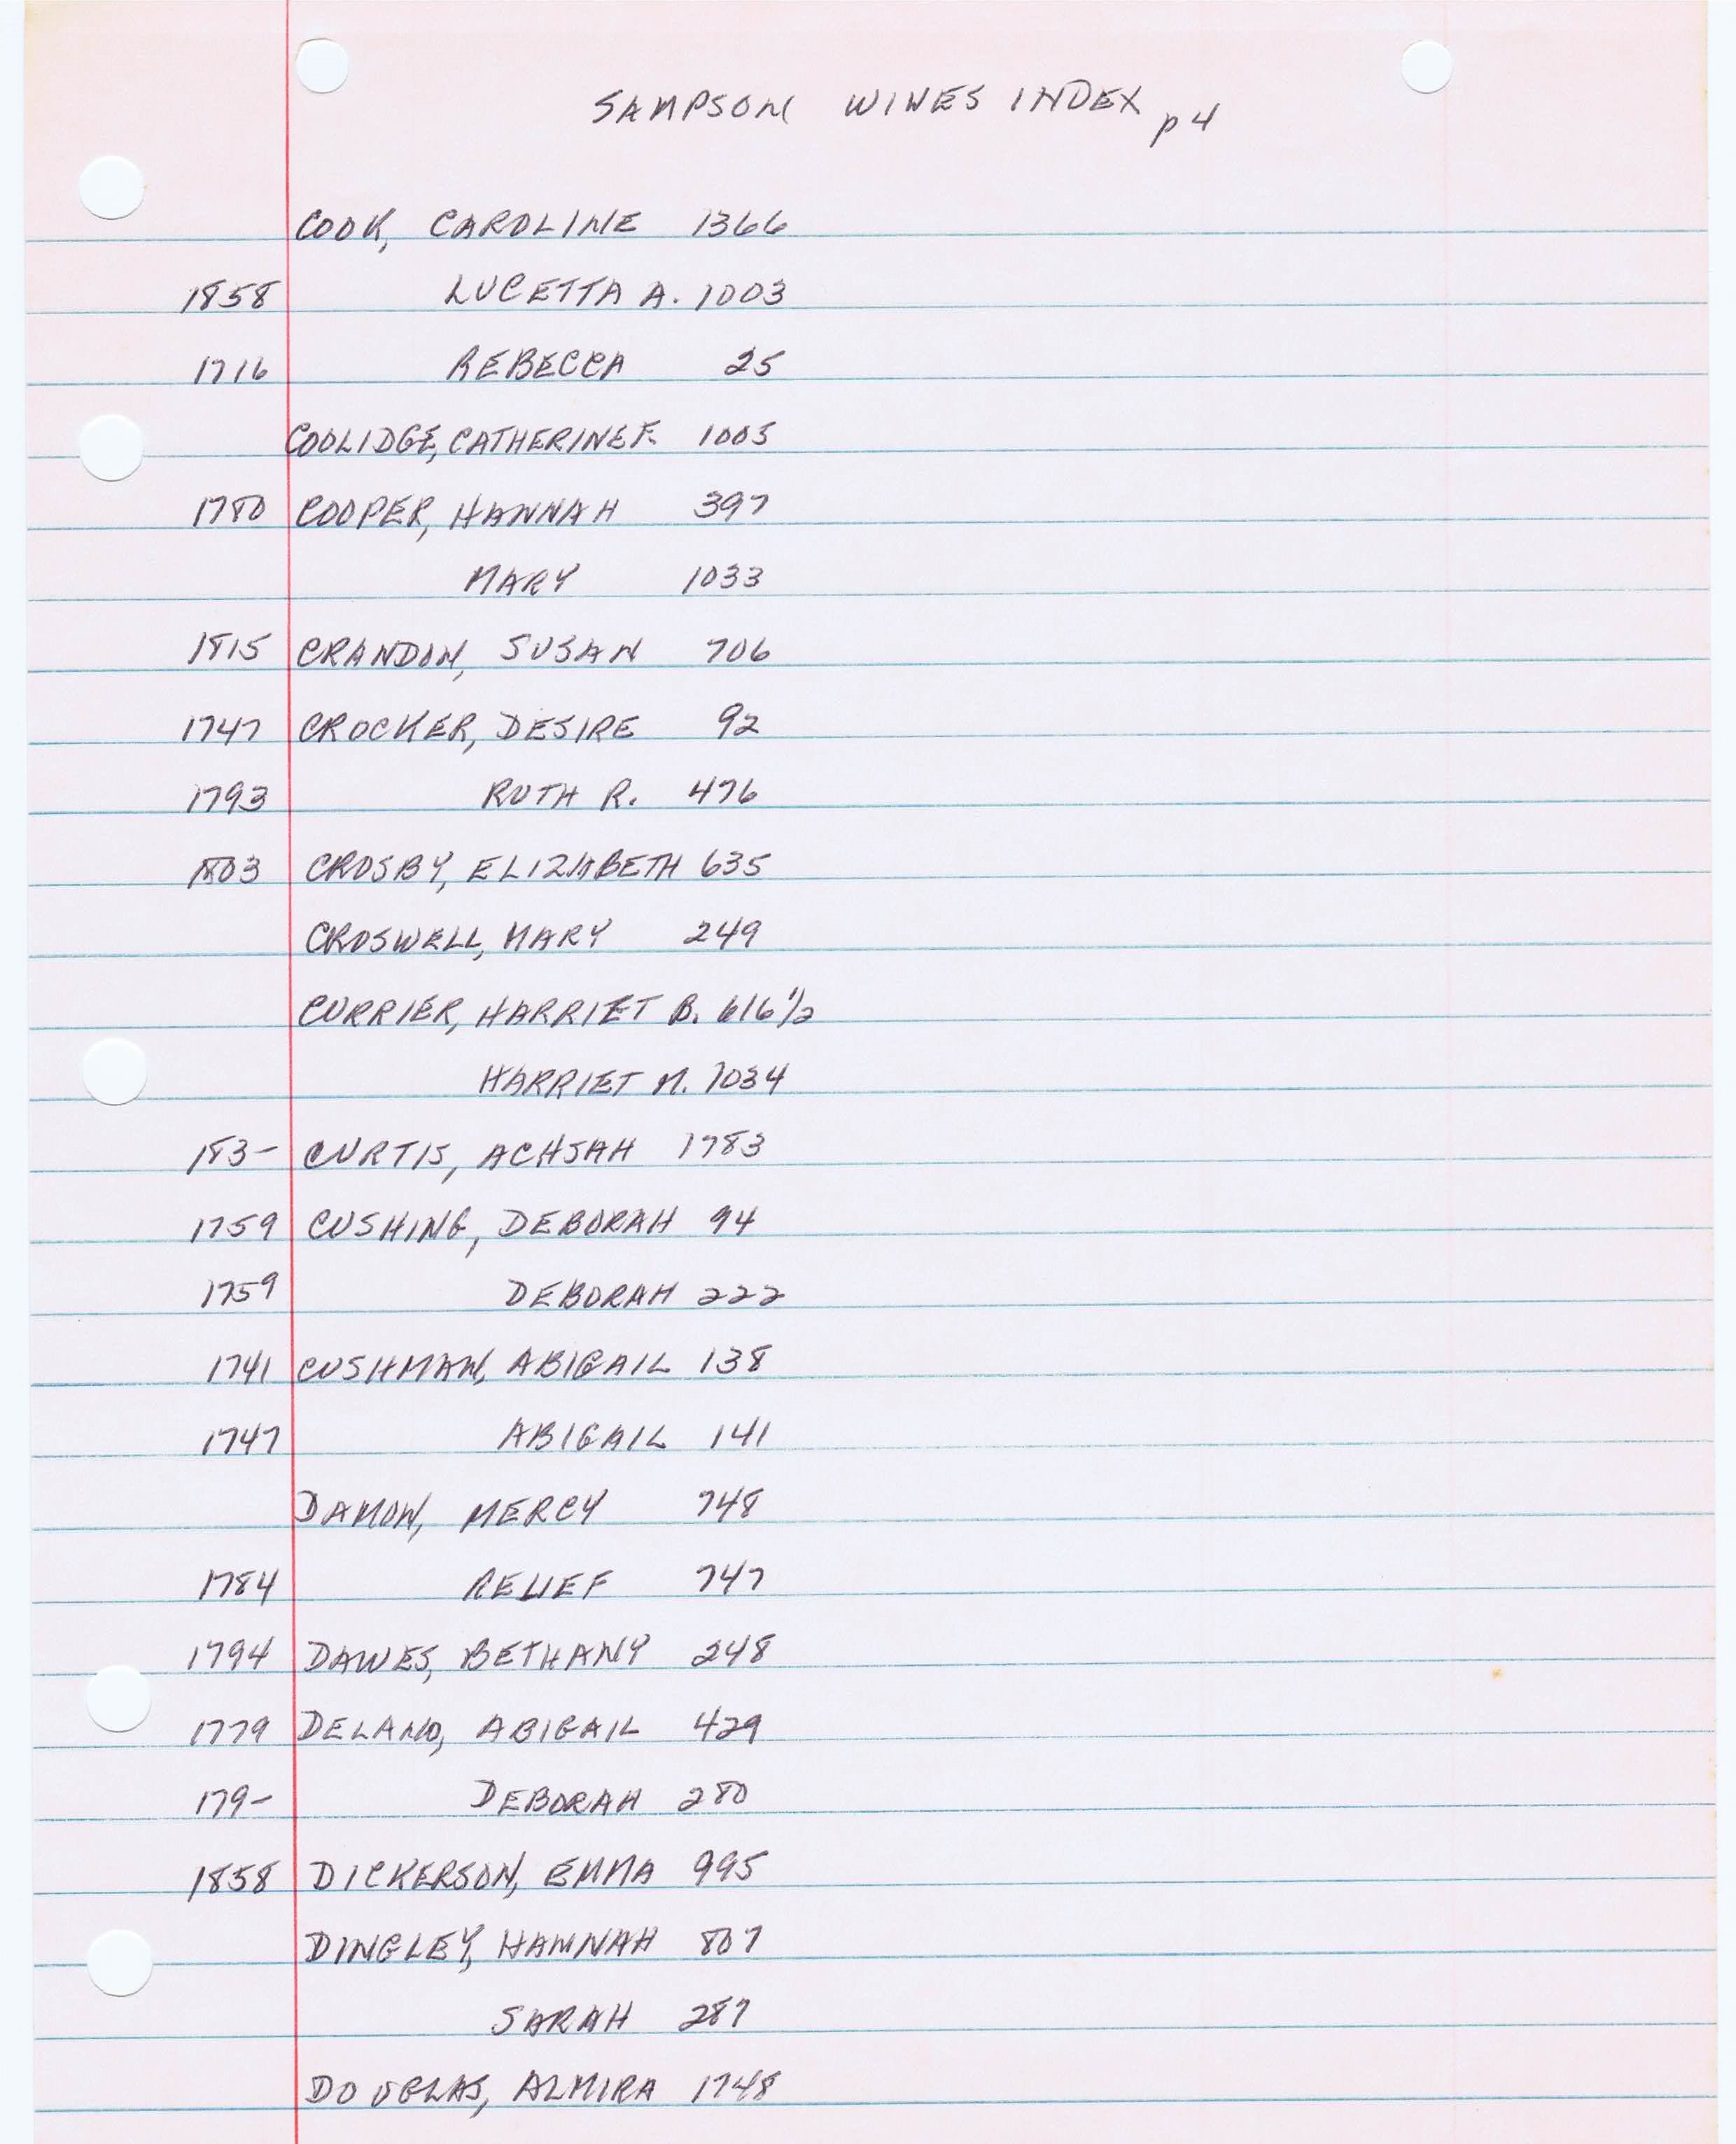 SAMPSON WIVES INDEX p 4
COOK, CAROLINE 1366
1858 LUCETTA A. 1003
1716 REBECCA 25
COOLIDGE, CATHERINE F. 1005
1780 COOPER, HANNAH 397
MARY 1033
1815 CRANDON, SUSAN 706
1747 CROCKER, DESIRE 92
1793 RUTH R. 476
1803 CROSBY, ELIZABETH 635
CROSWELL, MARY 249
CURRIER, HARRIET B. 616 1/2
HARRIET M. 1034
183- CURTIS, ACHSAH 1783
1759 CUSHING, DEBORAH 94
1759 DEBORAH 222
1741 CUSHMAN, ABIGAIL 138
1747 ABIGAIL 141
DAMON, MERCY 748
1784 RELIEF 747
1794 DAWES, BETHANY 248
1779 DELANO, ABIGAIL 429
179- DEBORAH 280
1858 DICKERSON, EMMA 995
DINGLEY, HANNAH 807
SARAH 287
DOUGLAS, ALMIRA 1748